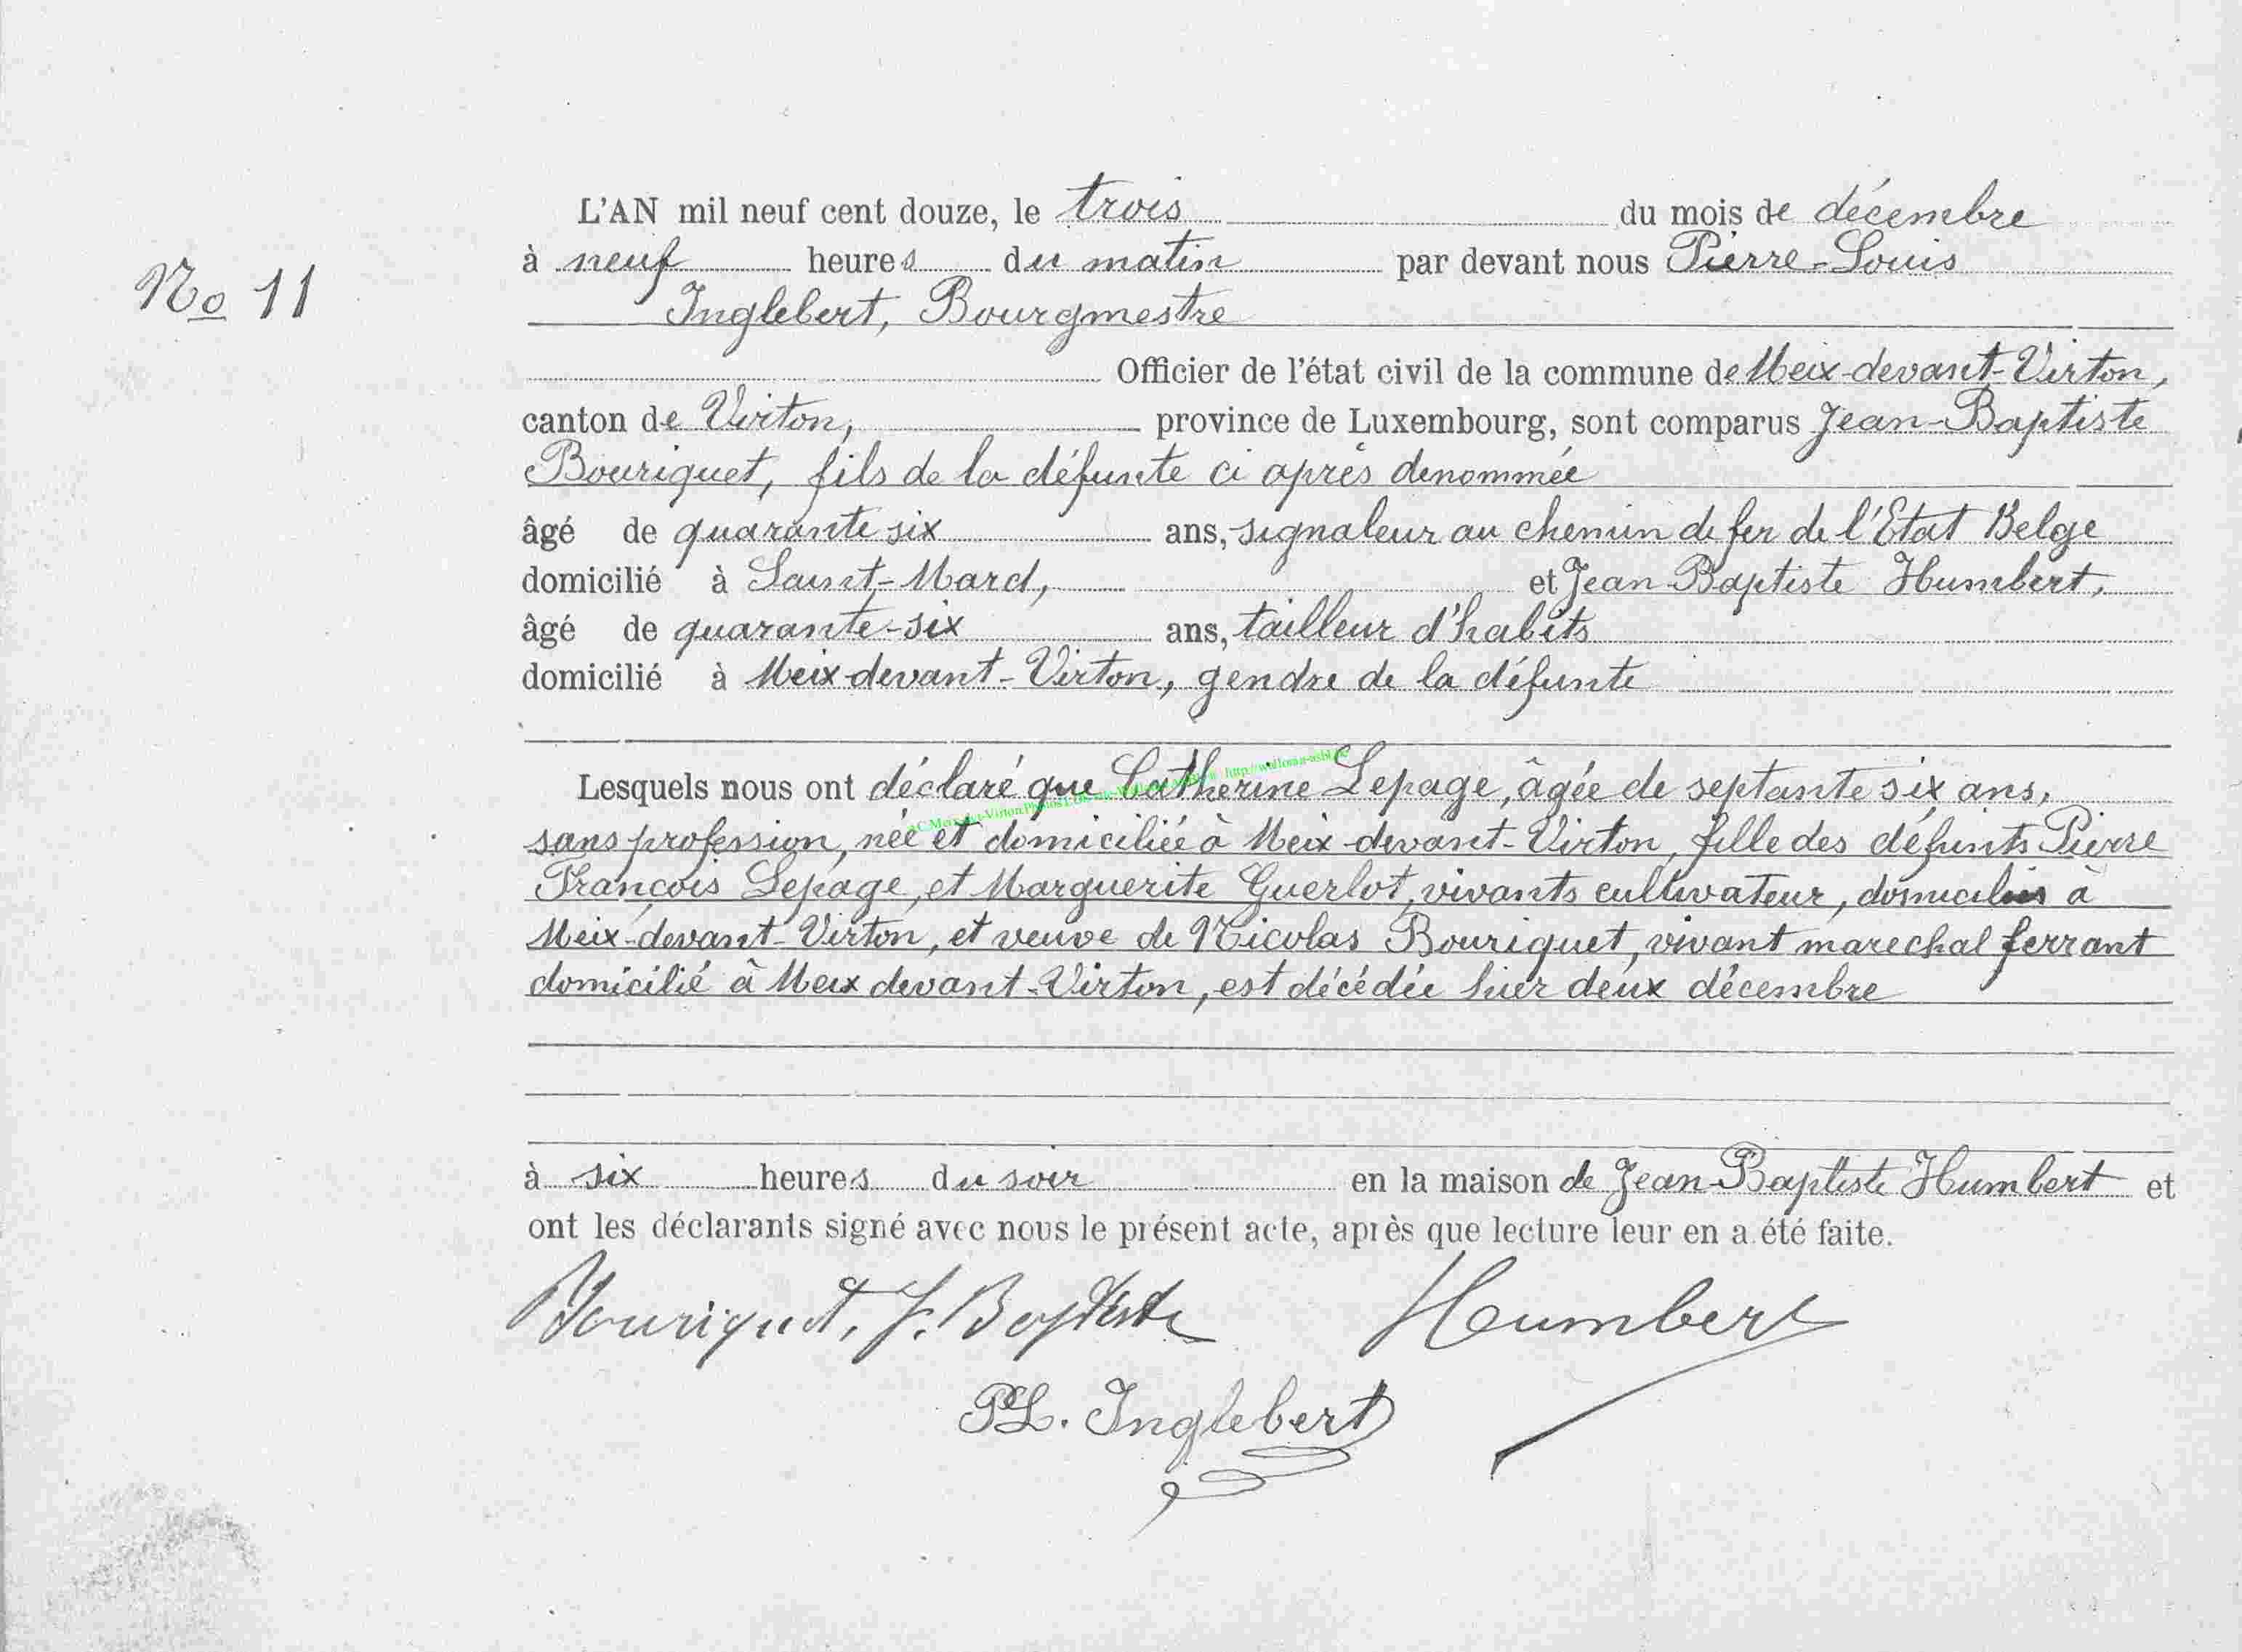 L'AN mil neuf cent douze, le trois du mois de décembre
No 11
à neuf heures du matin par devant nous Pierre-Louis
Inglebert, Bourgmestre
Officier de l'état civil de la commune de Meix-devant-Virton,
canton de Virton, province de Luxembourg, sont comparus Jean-Baptiste
Bouriquet, fils de la défunte ci après denommée
âgé de quarante six ans, signaleur au chemin de fer de l'Etat Belge
domicilié à Saint-Mard, et Jean-Baptiste Humbert,
âgé de quarante-six ans, tailleur d'habits
domicilié à Meix-devant-Virton, gendre de la défunte
Lesquels nous ont déclaré que Catherine Lepage, âgée de septante six ans,
sans profession, née et domiciliée à Meix-devant-Virton, fille des défunts Pierre
François Lepage, et Marguerite Guerlot, vivants cultivateur, domiciliés à
Meix-devant-Virton, et veuve de Nicolas Bouriquet, vivant marechal ferrant
domicilié à Meix devant-Virton, est décédée hier deux décembre
à six heures du soir en la maison de Jean-Baptiste Humbert et
ont les déclarants signé avec nous le présent acte, après que lecture leur en a été faite.
Bouriquet, J. Baptiste Humbert
PL. Inglebert